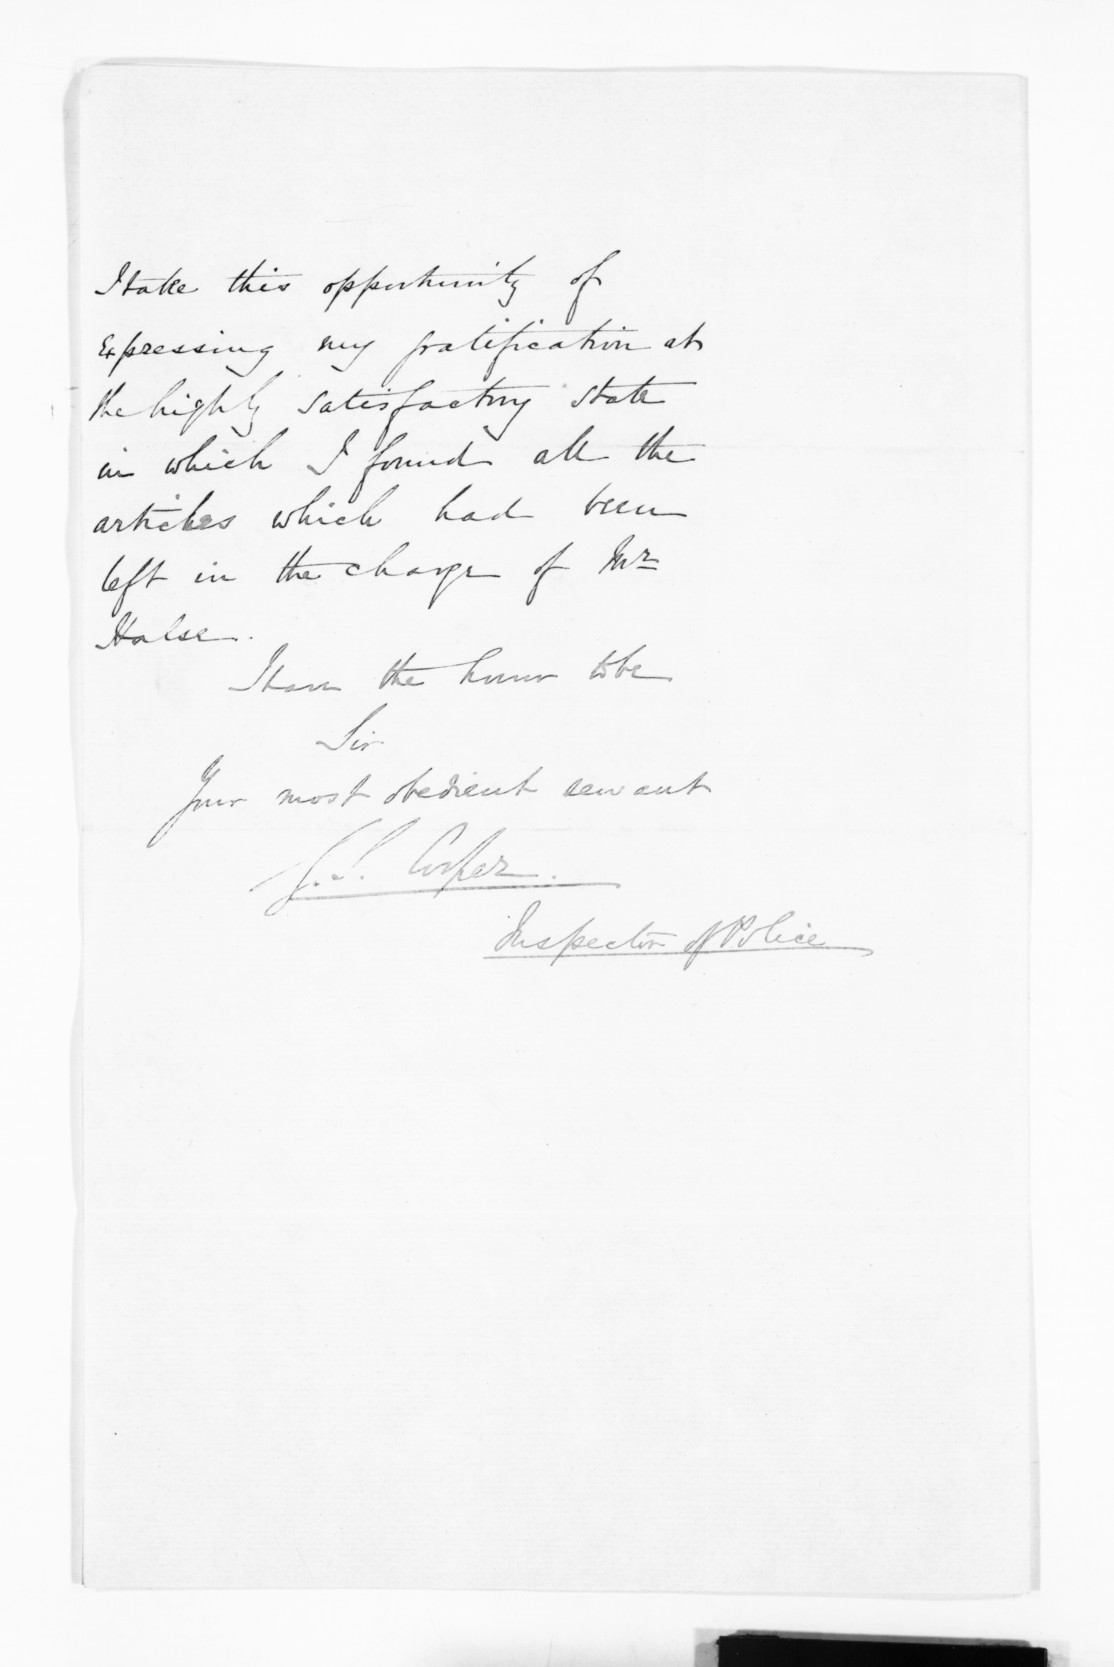 I take this opportunity of
expressing my gratification at
the highly satisfactory state
in which I found all the
articles which had been
left in the charge of Mr
Halse.
I have the honor to be
Sir
Your most obedient servant
G. S. Cooper.
Inspector of Police